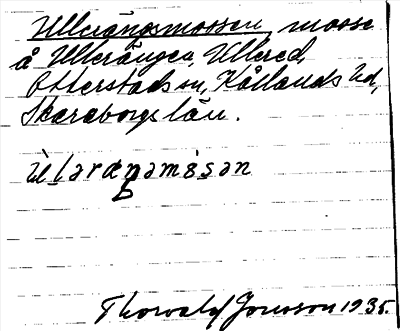 Ullerängsmossen mosse
å Ullerängen, Ullered,
Otterstads sn, Kållands hd,
Skaraborgs län.
Thorvald Jonsson 1935.